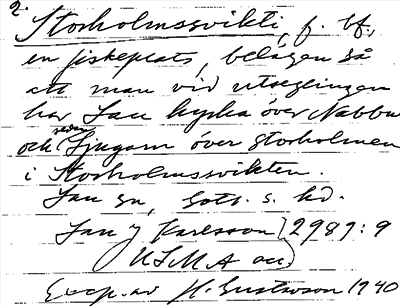 2.
Storholmssvikti, f. bf.,
en fiskeplats, belägen så
att man vid utseglingen
har Lau kyrka över Nabbu
och sedan Ljugarn över Storholmen
i Storholmssvikten.
Lau sn, Gotl. s. hd.
Lau J Karlsson } 2989:9
ULMA acc }
Excp. av H. Gustavson 1940